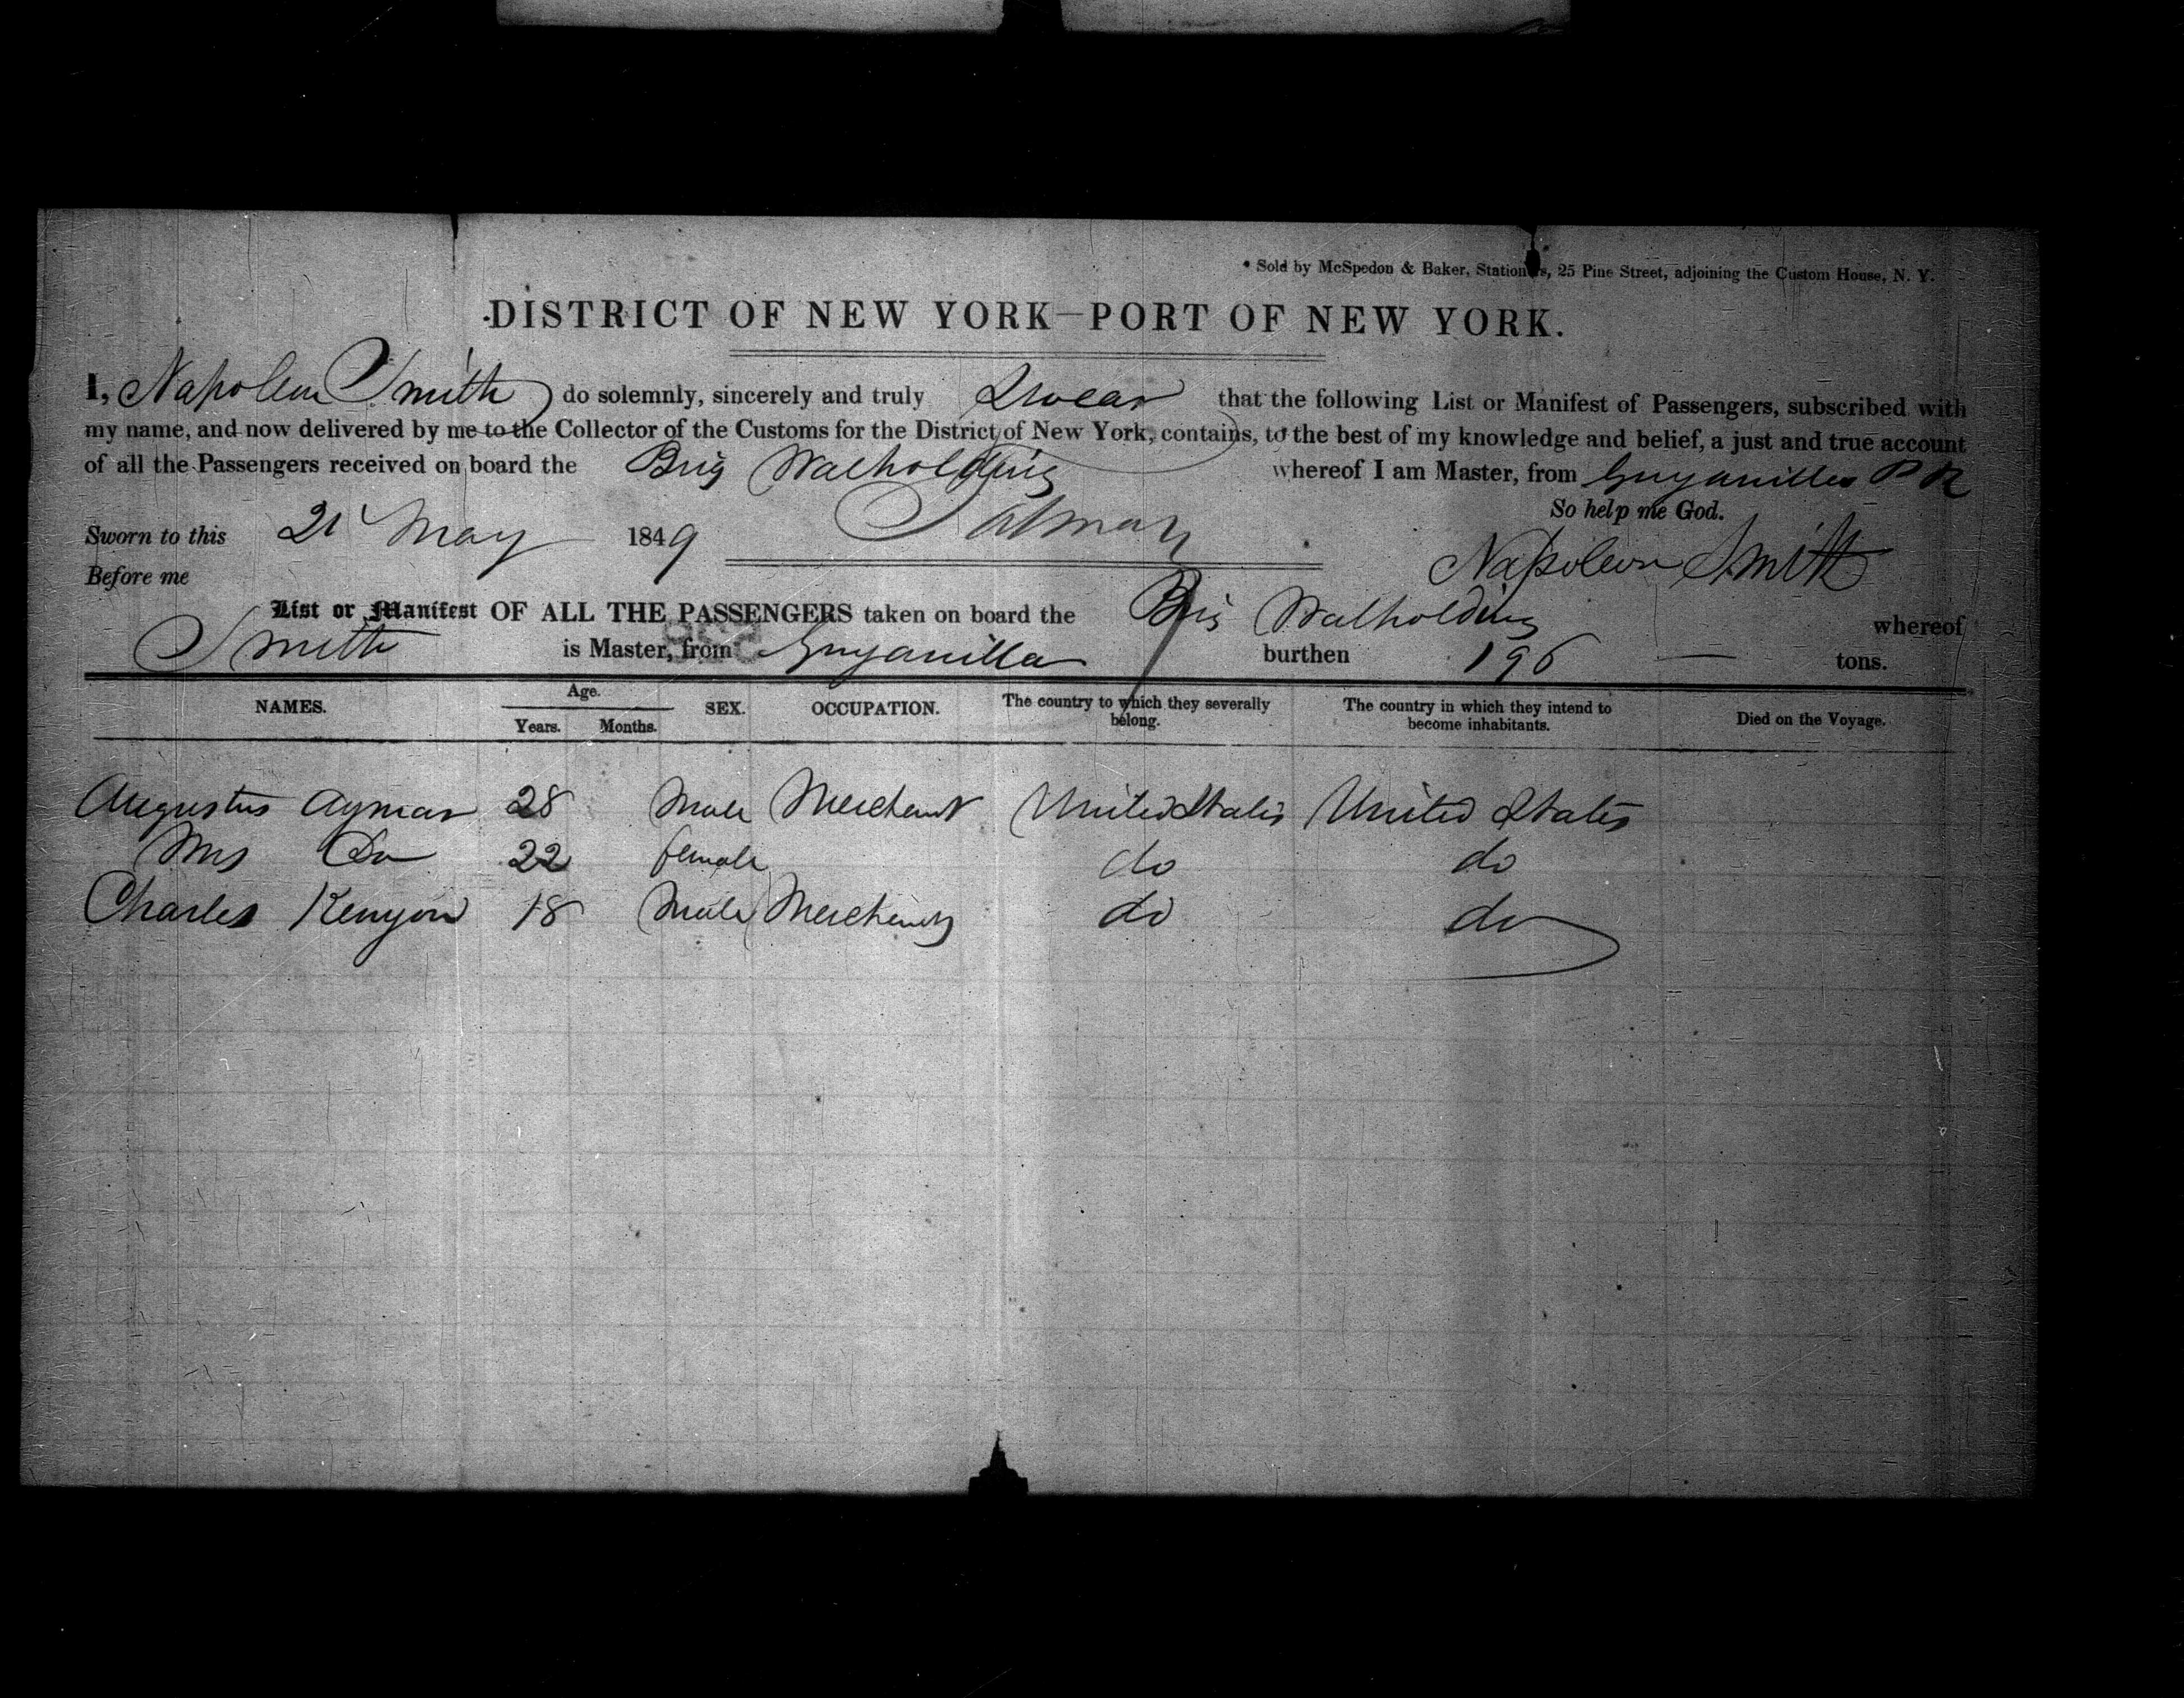 * Sold by McSpedon & Baker, Stationers, 25 Pine Street, adjoining the Custom House, N. Y.
DISTRICT OF NEW YORK—PORT OF NEW YORK.
I, Napoleon Smith do solemnly, sincerely and truly Swear that the following List or Manifest of Passengers, subscribed with
my name, and now delivered by me to the Collector of the Customs for the District of New York, contains, to the best of my knowledge and belief, a just and true account
of all the Passengers received on board the Brig Walholding whereof I am Master, from Guyanilla P R
So help me God.
Sworn to this 21 May 1849
Napoleon Smith
Before me
List or Manifest OF ALL THE PASSENGERS taken on board the Brig Walholding whereof
Smith is Master, from Guyanilla burthen 196 tons.
NAMES. Age. Years. Months. SEX. OCCUPATION. The country to which they severally belong. The country in which they intend to become inhabitants. Died on the Voyage.
Augustus Aymar 28 Male Merchant United States United States
Mrs Do 22 female do do
Charles Kenyon 18 Male Merchant do do